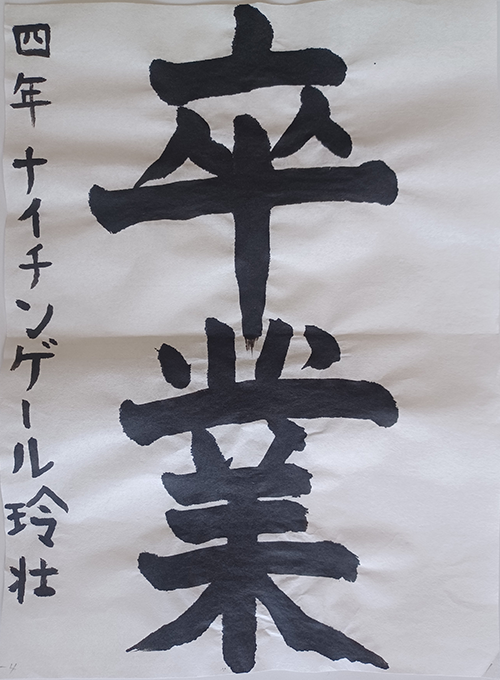 卒業
四年 ナイチンゲール 玲壮